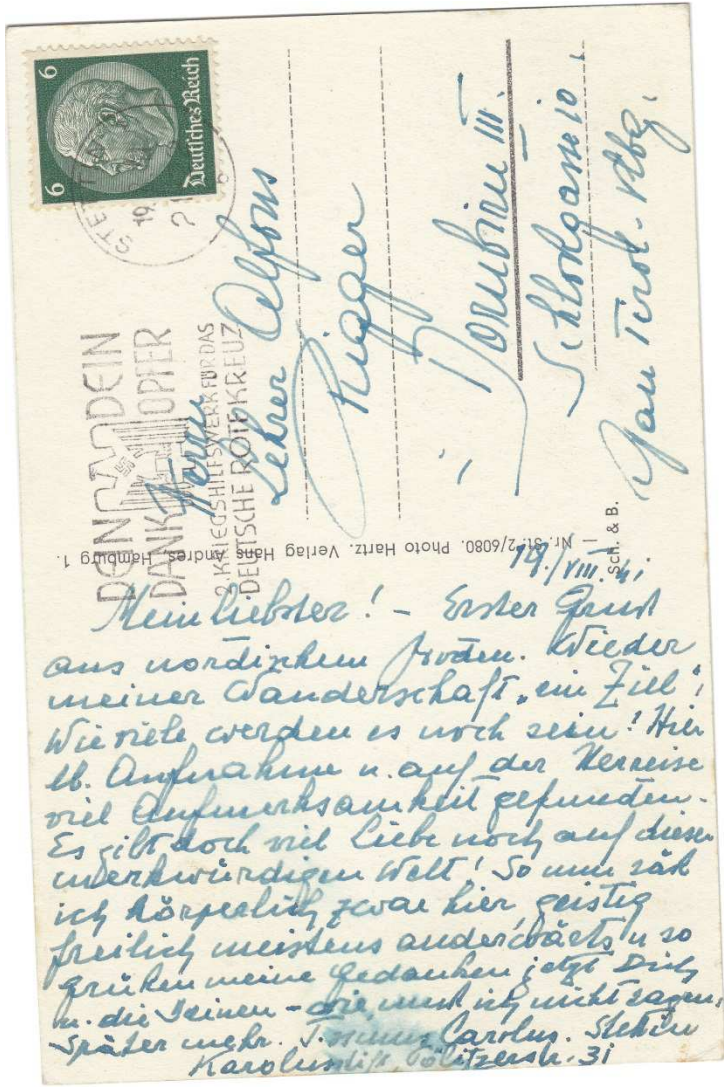 6 6
Deutsches Reich
STETTIN
19.
21
DEIN DEIN
DANK OPFER
2. KRIEGSHILFSWERK FÜR DAS
DEUTSCHE ROTE KREUZ
Herrn
Lehrer Alfons
Rigger
Dornbirn III.
Schloßgasse 10.
Gau Tirol-Vbg.
Nr. St. 2/6080. Photo Hartz. Verlag Hans Andres, Hamburg 1.
Sch. & B.
19./VIII. 41
Mein Liebster! - Erster Gruß
aus nordischem Boden. Wieder
meiner Wanderschaft "ein Ziel"!
Wieviele werden es noch sein! Hier
lb. Aufnahme u. auf der Herreise
viel Aufmerksamkeit gefunden.
Es gibt doch viel Liebe noch auf dieser
merkwürdigen Welt! So nun
ich körperlich zwar hier, geistig
freilich meistens anderwärts u. so
grüßen meine Gedanken jetzt Dich
u. die Deinen - wie, muß ich nicht sagen.
Später mehr. Carolus. Stettin
Karolusstift Pölitzerstr. 31